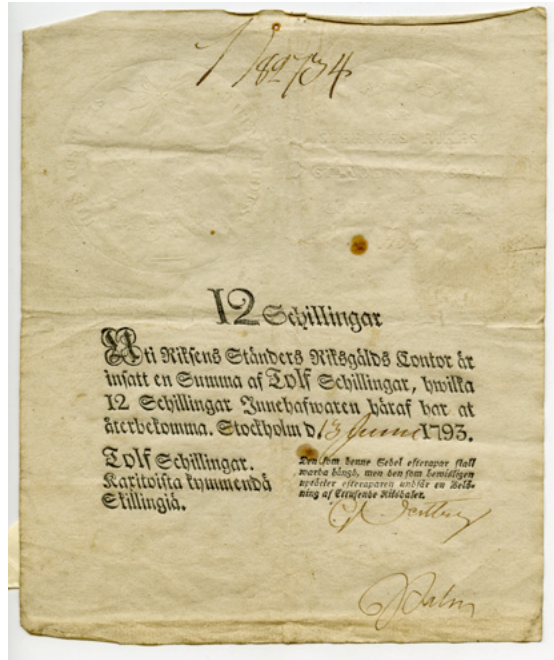 182734
12 Schillingar
Uti Riksens Ständers Riksgälds Contor är
insatt en Summa af Tolf Schillingar, hwilka
12 Schillingar Innehafwaren häraf har at
återbekomma. Stockholm d. 13 Junii 1793.
Tolf Schillingar.
Kaxitoista kymmendä
Skillingiä.
Den som denne Sedel efterapar skall
warda hängd, men den som bewisligen
uptäcker efteraparen undfår en Belö-
ning af Ettusende Riksdaler.